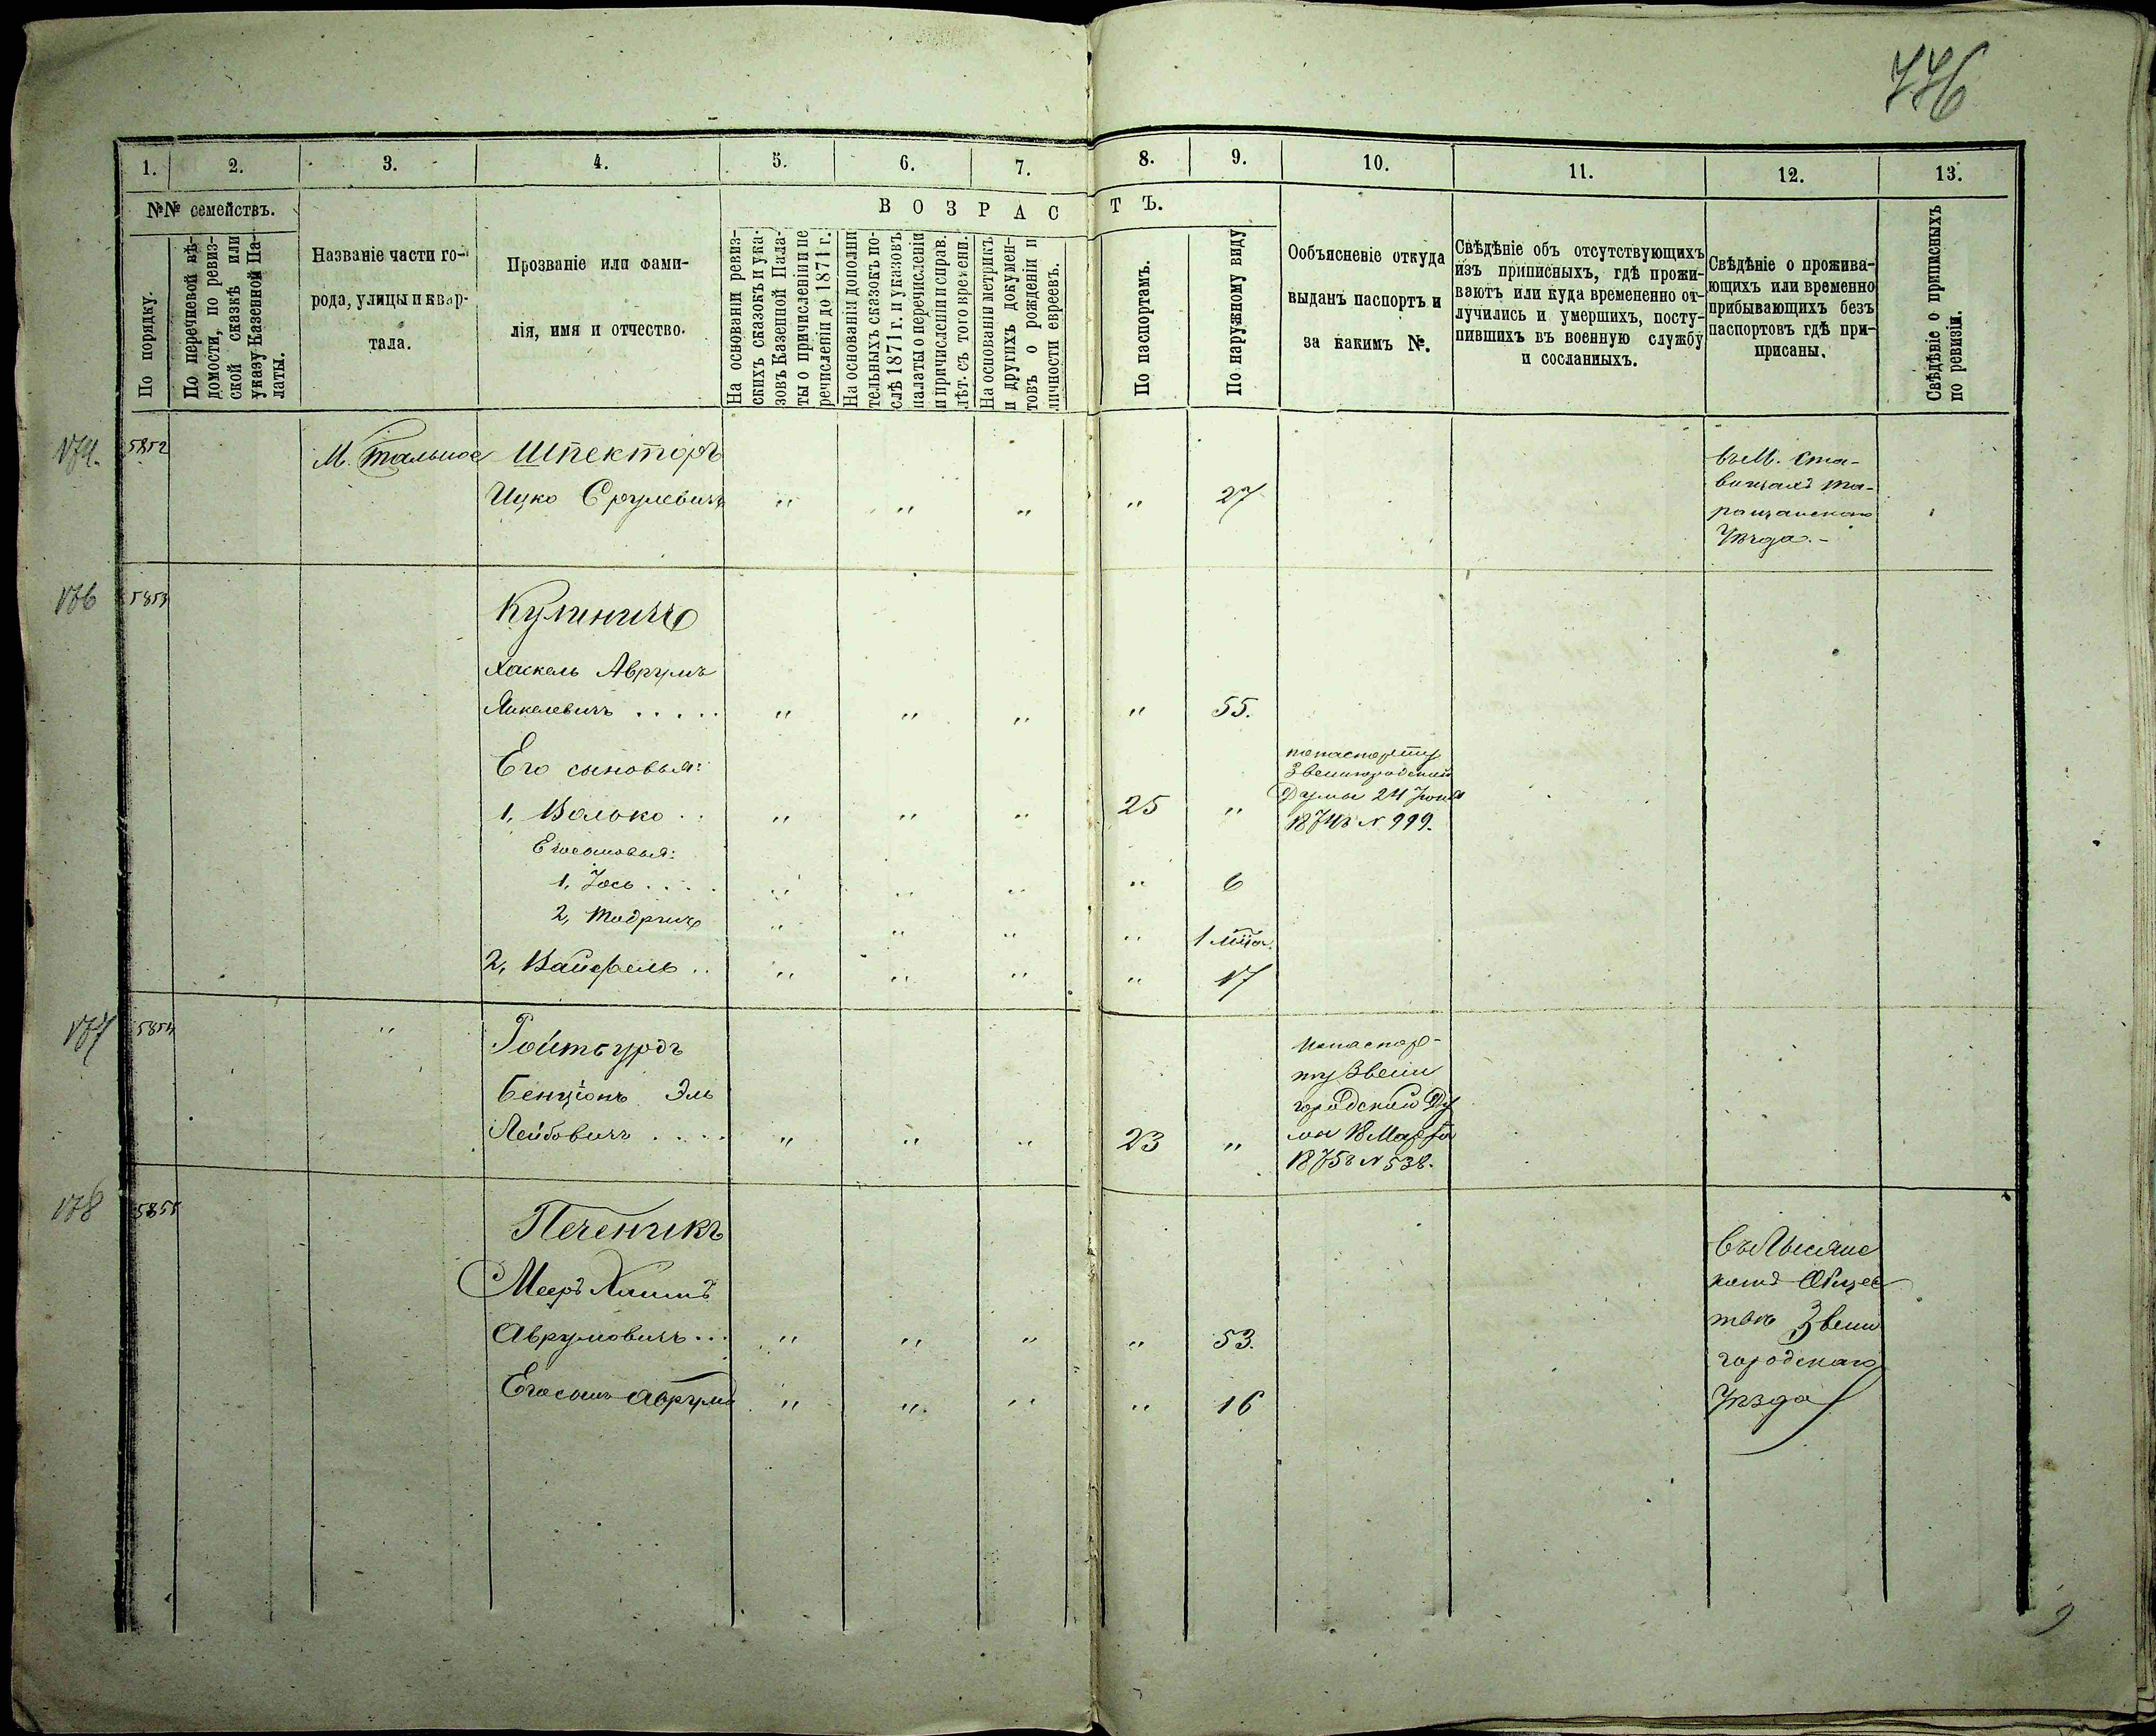 776
1. 2. 3. 4. 5. 6. 7. 8. 9. 10. 11. 12. 13.
№№ семействъ.
По порядку.
По перечневой вѣ-
домости, по ревиз-
ской сказкѣ или
указу Казенной Па-
латы.
Названіе части го-
рода, улицы и квар-
тала.
Прозваніе или фами-
лія, имя и отчество.
ВОЗРАСТЪ.
На основаніи ревиз-
скихъ сказокъ и ука-
зовъ Казенной Пала-
ты о причисленіи и пе
речисленіи до 1871 г.
На основаніи дополни
тельныхъ сказокъ по-
слѣ 1871 г. и указовъ
палаты о перечисленіи
и причисленіи и справ.
лѣт. съ того времени.
На основаніи метрикъ
и другихъ докумен-
товъ о рожденіи и
личности евреевъ.
По паспортамъ.
По наружному виду
Ообъясненіе откуда
выданъ паспортъ и
за какимъ №.
Свѣдѣніе объ отсутствующихъ
изъ приписныхъ, гдѣ прожи-
ваютъ или куда времененно от-
лучились и умершихъ, посту-
пившихъ въ военную службу
и сосланныхъ.
Свѣдѣніе о прожива-
ющихъ или временно
прибывающихъ безъ
паспортовъ гдѣ при-
присаны.
Свѣдѣніе о приписныхъ
по ревизіи.
5852 М. Тальное Шпекторъ
Ицко Срулевичъ " " " " 27
въ М. Ста-
вищахъ Та-
ращанскаго
Уѣзда.-
176 5853 Кулиничъ
Хаскель Аврумъ
Янкелевичъ ..... " " " " 55.
Его сыновья:
1, Волько .. " " " 25 "
по паспорту
Звенигородской
Думы 24 Іюня
1874г № 999.
Его сыновья:
1, Іось .... " " " " 6
2, Тодрисъ " " " " 1 м̃ца.
2, Вайфель .. " " " " 17
177 5854 " Ройтбурдъ
Бенціонъ Эль
Лейбовичъ .... " " " 23 "
По паспор-
ту Звени
городской Ду
мы 18 Марта
1875г № 538.
178 5855 Печеникъ
Мееръ Хаимъ
Аврумовичъ ... " " " " 53.
Его сынъ Аврумъ " " " " 16
Въ Лысянс
комъ Общес
твѣ Звени
городскаго
Уѣзда
9